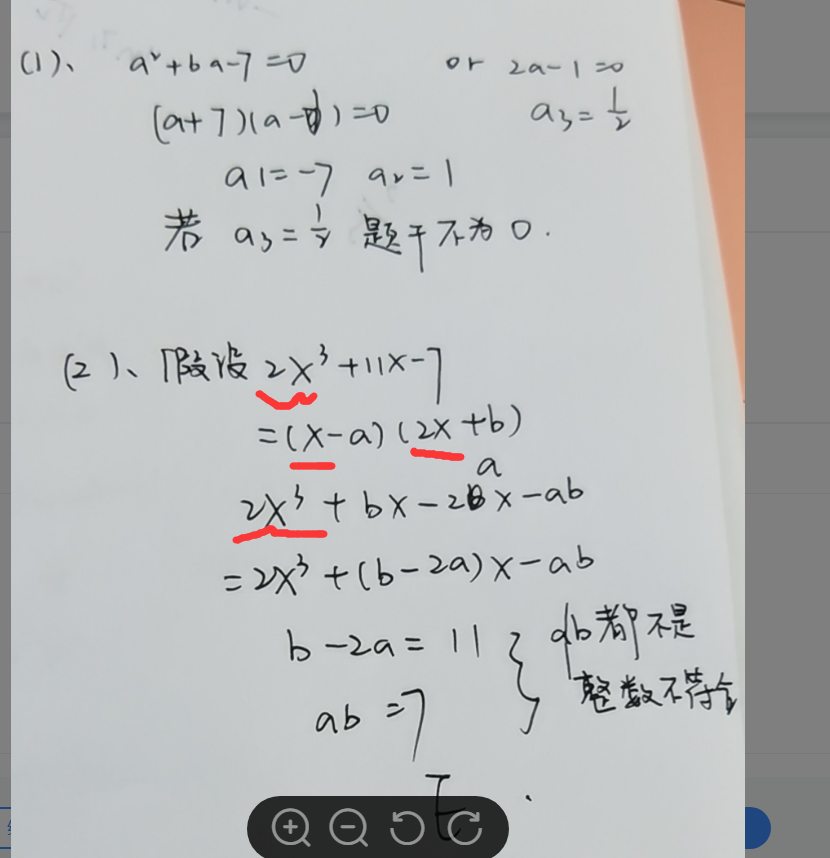 (1)、 a²+ba-7=0 or 2a-1=0
(a+7)(a-1)=0 a₃=½
a1=-7 a₂=1
若 a₃=½ 题干不为0.
(2)、假设 2x³+11x-7
=(x-a)(2x+b)
2x³+bx-2ax-ab
=2x³+(b-2a)x-ab
b-2a=11
ab=7
ab都不是
整数不符合
E.